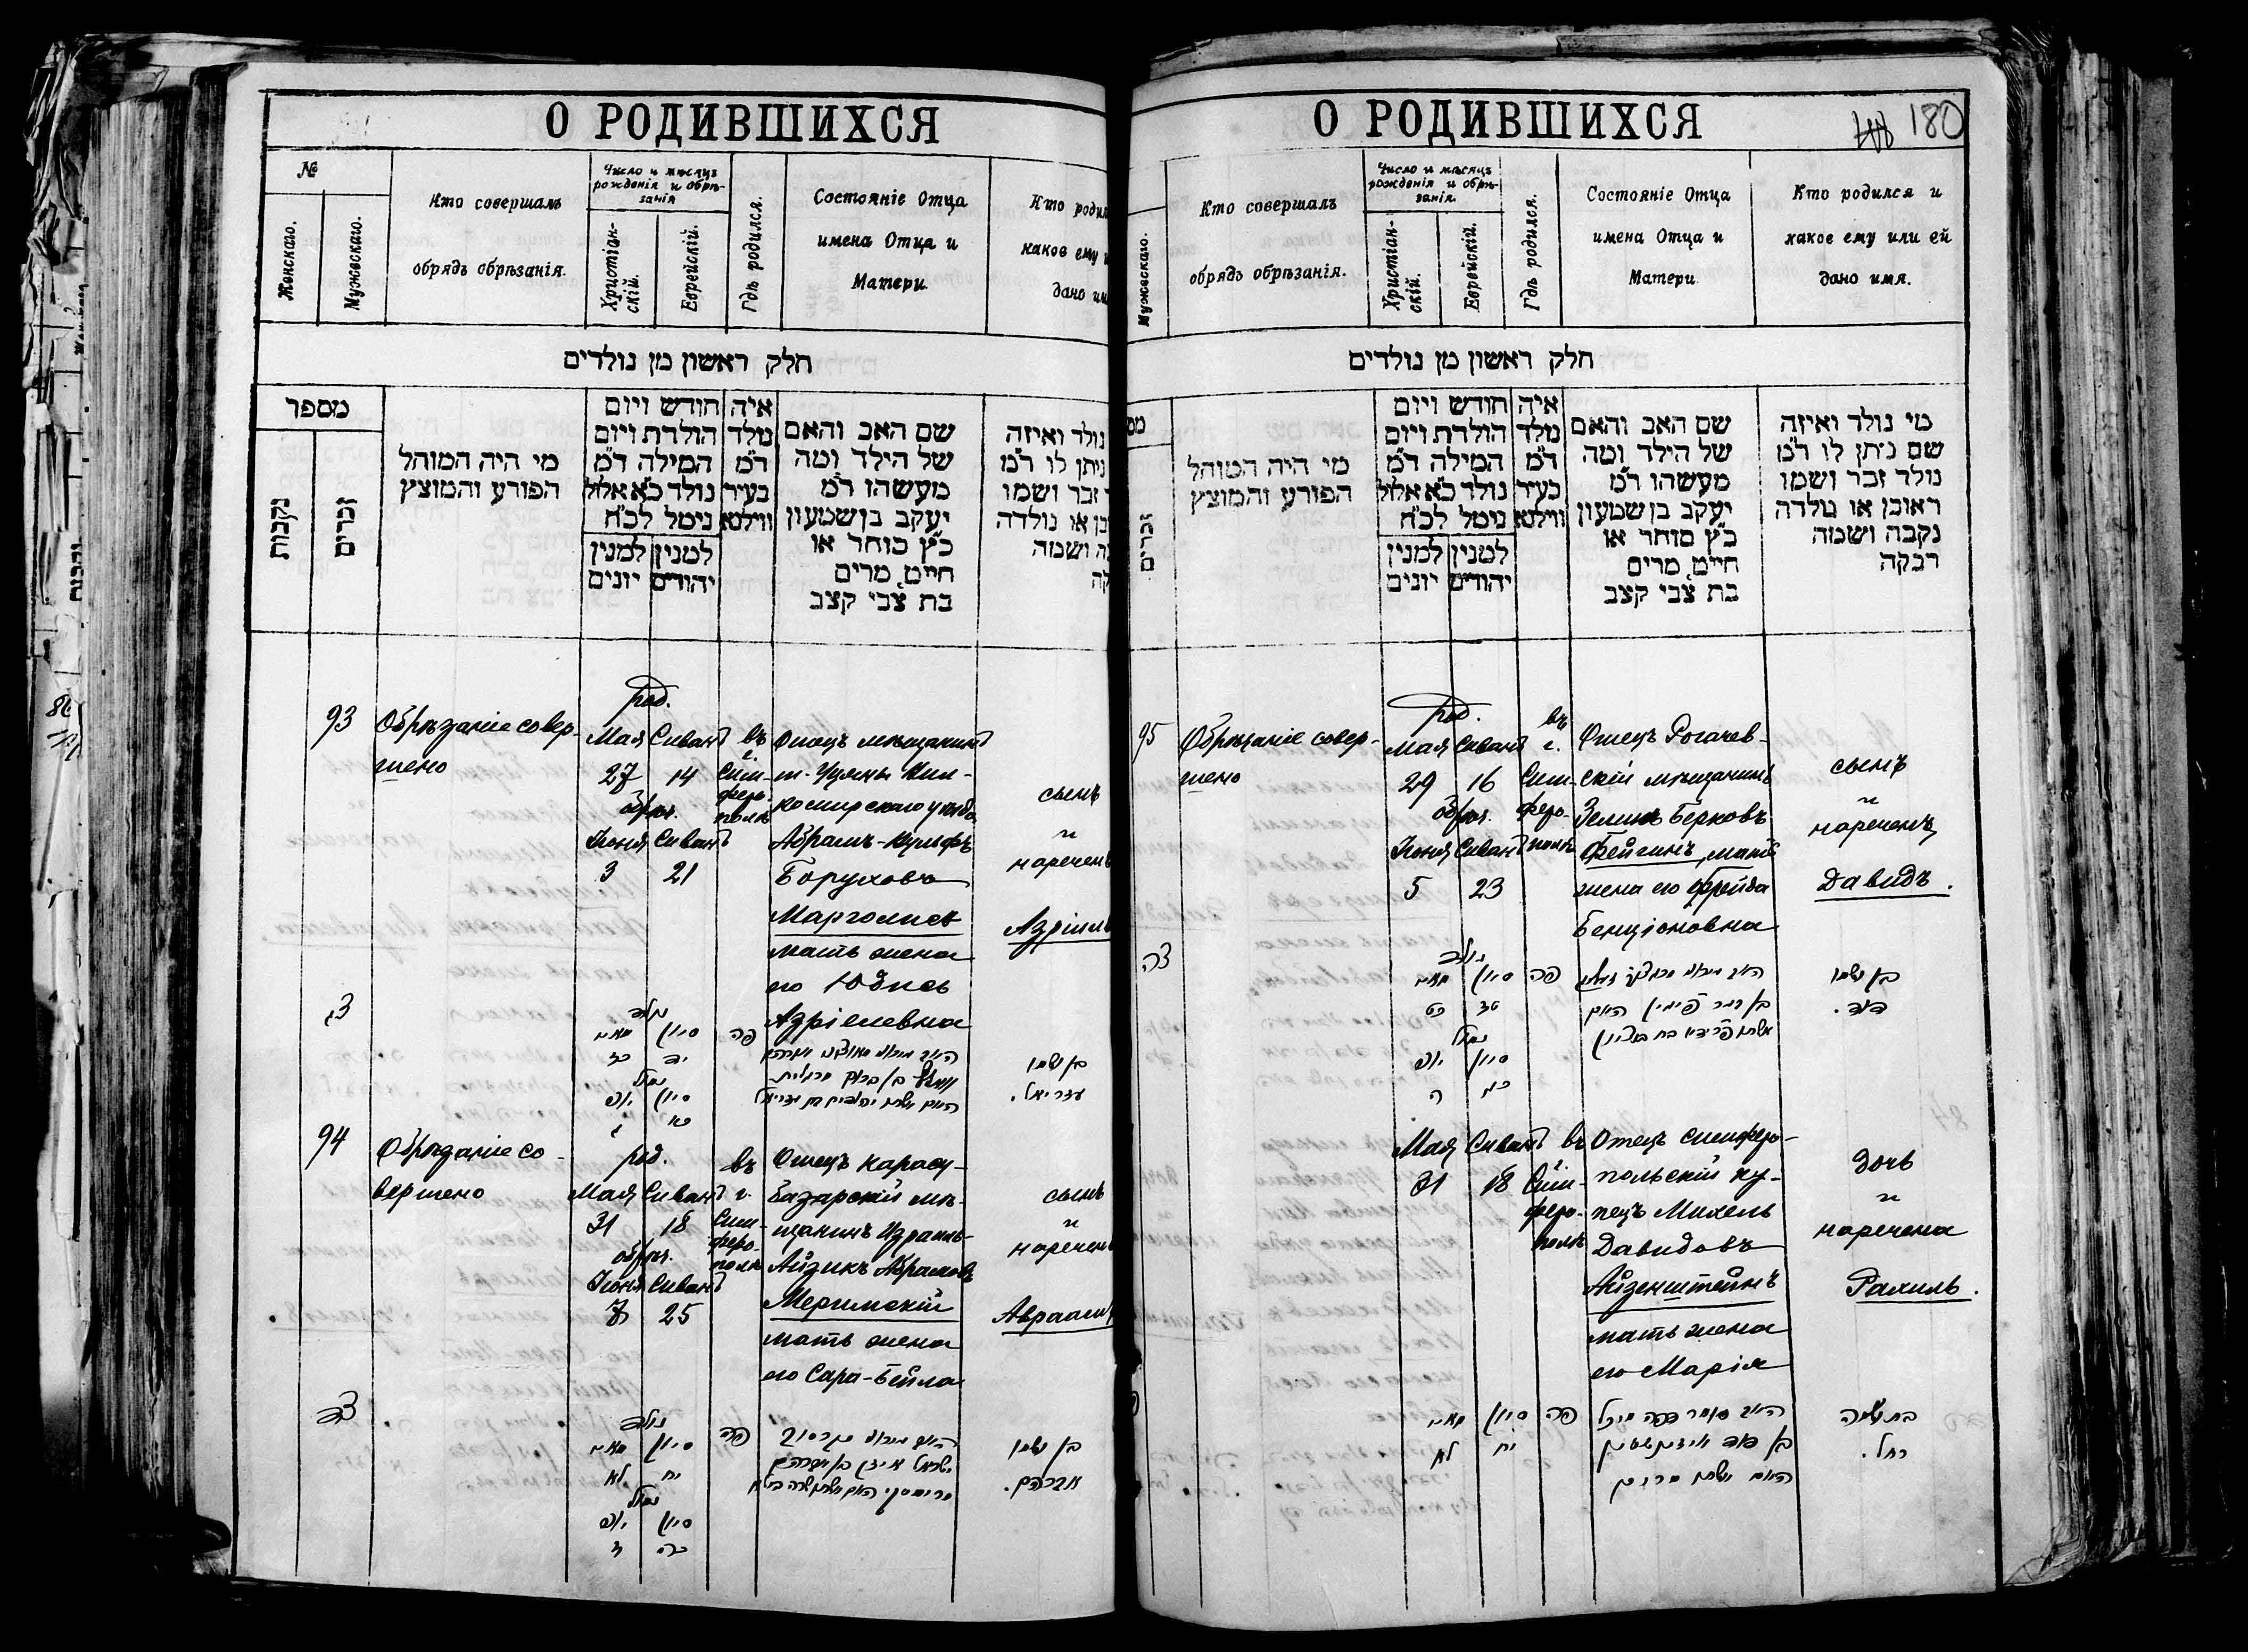 О РОДИВШИХСЯ
№
Женскаго.
Мужескаго.
Кто совершалъ
обрядъ обрѣзанія.
Число и мѣсяцъ
рожденія и обрѣ-
занія
Христіан-
скій.
Еврейскій.
Гдѣ родился.
Состояніе Отца
имена Отца и
Матери.
Кто роди
какое ему
дано им
חלק ראשון מן נולדים
מספר
נקבות
זכרים
מי היה המוהל
הפורע והמוצץ
חודש ויום
הולדת ויום
המילה ד״מ
נולד כ״א אלול
נימל לכ״ח
למנין
יהודים
למנין
יונים
איה
נולד
ד״מ
בעיר
ווילנא
שם האב והאם
של הילד ומה
מעשהו ד״מ
יעקב בן שמעון
כ״ץ סוחר או
חייט, מרים
בת צבי קצב
נולד ואיזה
ניתן לו ד״מ
זכר ושמו
או נולדה
ושמה
93
Обрѣзаніе совер-
шено
род.
Мая Сиванъ
27 14
обрѣз.
Іюня Сиванъ
3 21
въ
г.
Сим-
феро-
полѣ
Отецъ мѣщанинъ
Абрамъ-Вульфъ
Боруховъ
Марголисъ
мать жена
его Юдись
Азріелевна
сынъ
и
нареченъ
Азріиль
נולד
מאי סיון
כז יד
נמול
יוני סיון
ג כא
פה
בן ושמו
עזריאל.
94
Обрѣзаніе со-
вершено
род.
Мая Сиванъ
31 18
обрѣз.
Іюня Сиванъ
7 25
въ
г.
Сим-
феро-
полѣ
Отецъ Карасу-
базарскій мѣ-
щанинъ Израиль-
Айзикъ Абрамовъ
Меримскій
мать жена
его Сара-Бейла
сынъ
и
нареченъ
Авраамъ
צד
נולד
מאי סיון
לא יח
נמול
יוני סיון
ז כה
פה
בן ושמו
אברהם.
О РОДИВШИХСЯ
180
Мужескаго.
Кто совершалъ
обрядъ обрѣзанія.
Число и мѣсяцъ
рожденія и обрѣ-
занія.
Христіан-
скій.
Еврейскій.
Гдѣ родился.
Состояніе Отца
имена Отца и
Матери
Кто родился и
какое ему или ей
дано имя.
חלק ראשון מן נולדים
זכרים
מי היה המוהל
הפורע והמוצץ
חודש ויום
הולדת ויום
המילה ד״מ
נולד כ״א אלול
נימל לכ״ח
למנין
יהודים
למנין
יונים
איה
נולד
ד״מ
בעיר
ווילנא
שם האב והאם
של הילד ומה
מעשהו ד״מ
יעקב בן שמעון
כ״ץ סוחר או
חייט, מרים
בת צבי קצב
מי נולד ואיזה
שם ניתן לו ד״מ
נולד זכר ושמו
ראובן או נולדה
נקבה ושמה
רבקה
95
Обрѣзаніе совер-
шено
род.
Мая Сиванъ
29 16
обрѣз.
Іюня Сиванъ
5 23
въ
г.
Сим-
феро-
полѣ
Отецъ Рогачев-
скій мѣщанинъ
Зеликъ Берковъ
Фейгинъ, мать
жена его Фрейда
Бенціоновна
сынъ
и
нареченъ
Давидъ.
צה
נולד
מאי סיון
כט טז
נמול
יוני סיון
ה כג
פה
בן ושמו
דוד.
Мая Сиванъ
31 18
въ
Сим-
феро-
полѣ
Отецъ симферо-
польскій ку-
пецъ Михель
Давидовъ
Айзенштейнъ
мать жена
его Марія
дочь
и
наречена
Рахиль.
מאי סיון
לא יח
פה
האב סוחר מפה מיכל
בן דוד אייזענשטיין
האם ושמה מרים
בת ושמה
רחל.